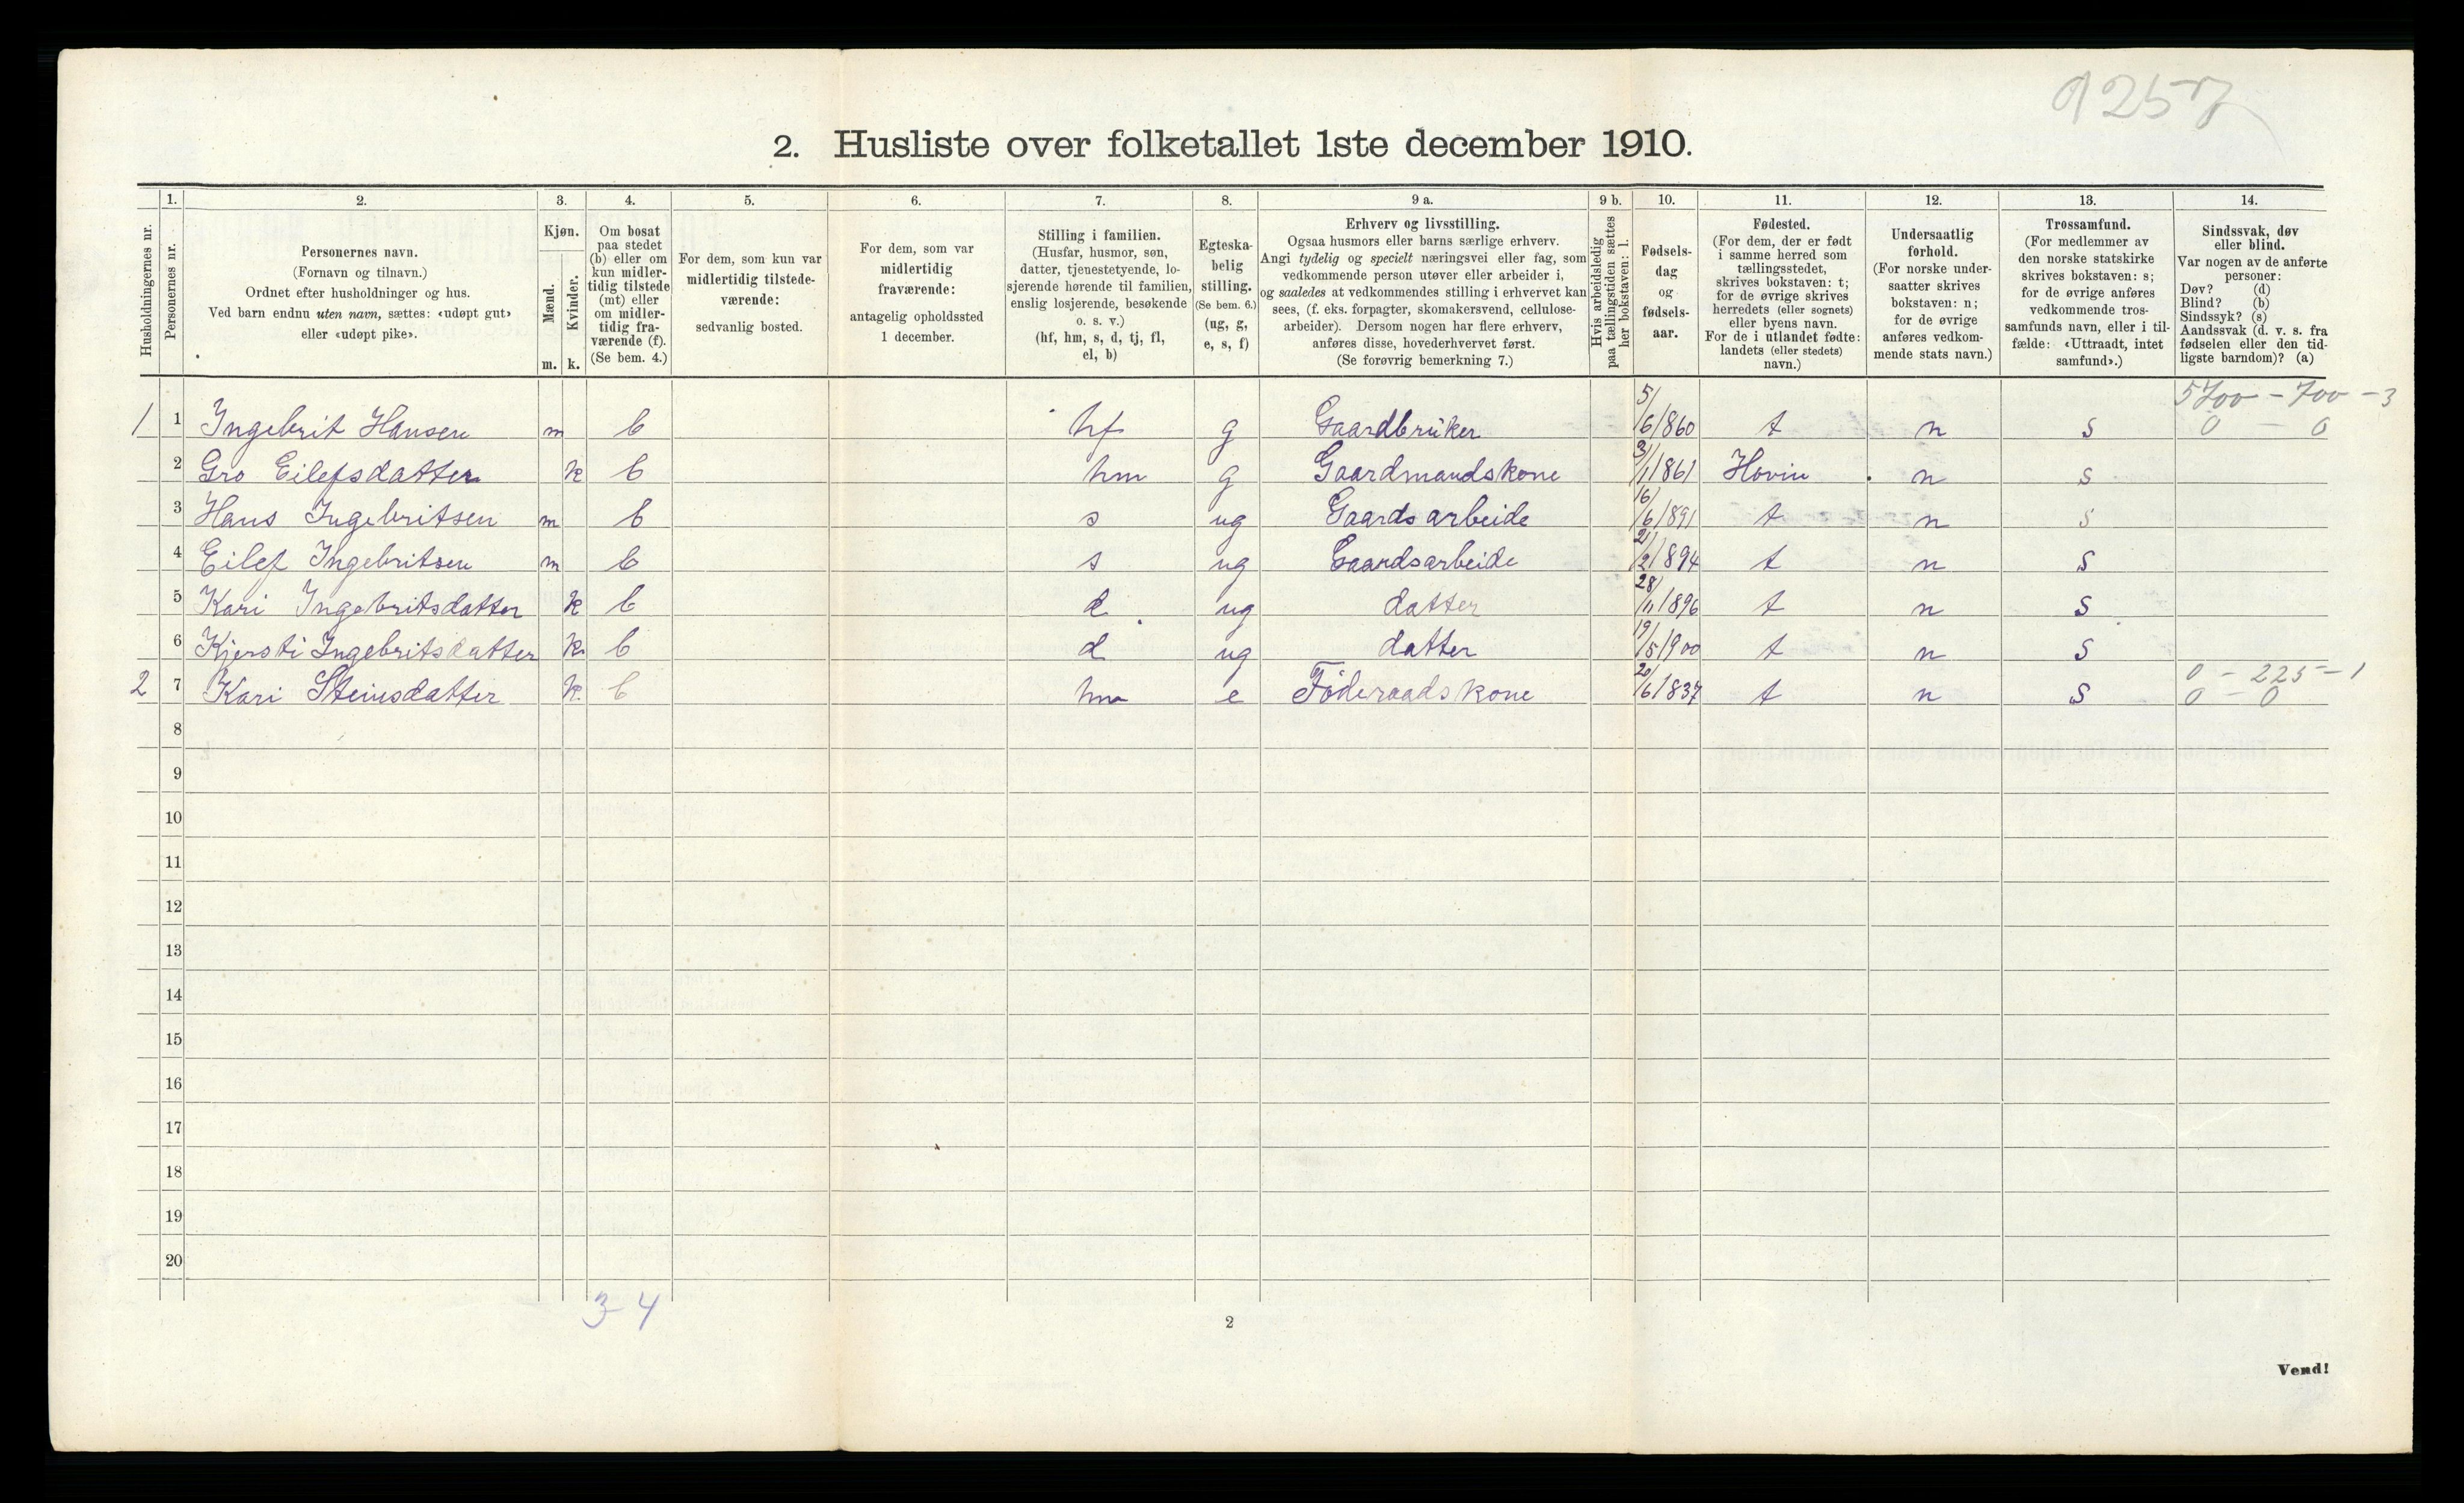 9257
2. Husliste over folketallet 1ste december 1910.
Husholdningernes nr.
1.
Personernes nr.
2.
Personernes navn.
(Fornavn og tilnavn.)
Ordnet efter husholdninger og hus.
Ved barn endnu uten navn, sættes: «udøpt gut»
eller «udøpt pike».
3.
Kjøn.
Mænd.
Kvinder.
m. k.
4.
Om bosat
paa stedet
(b) eller om
kun midler-
tidig tilstede
(mt) eller
om midler-
tidig fra-
værende (f).
(Se bem. 4.)
5.
For dem, som kun var
midlertidig tilstede-
værende:
sedvanlig bosted.
6.
For dem, som var
midlertidig
fraværende:
antagelig opholdssted
1 december.
7.
Stilling i familien.
(Husfar, husmor, søn,
datter, tjenestetyende, lo-
sjerende hørende til familien,
enslig losjerende, besøkende
o. s. v.)
(hf, hm, s, d, tj, fl,
el, b)
8.
Egteska-
belig
stilling.
(Se bem. 6.)
(ug, g,
e, s, f)
9 a.
Erhverv og livsstilling.
Ogsaa husmors eller barns særlige erhverv.
Angi tydelig og specielt næringsvei eller fag, som
vedkommende person utøver eller arbeider i,
og saaledes at vedkommendes stilling i erhvervet kan
sees, (f. eks. forpagter, skomakersvend, cellulose-
arbeider). Dersom nogen har flere erhverv,
anføres disse, hovederhvervet først.
(Se forøvrig bemerkning 7.)
9 b.
Hvis arbeidsledig
paa tællingstiden sættes
her bokstaven: l.
10.
Fødsels-
dag
og
fødsels-
aar.
11.
Fødested.
(For dem, der er født
i samme herred som
tællingsstedet,
skrives bokstaven: t;
for de øvrige skrives
herredets (eller sognets)
eller byens navn.
For de i utlandet fødte:
landets (eller stedets)
navn.)
12.
Undersaatlig
forhold.
(For norske under-
saatter skrives
bokstaven: n;
for de øvrige
anføres vedkom-
mende stats navn.)
13.
Trossamfund.
(For medlemmer av
den norske statskirke
skrives bokstaven: s;
for de øvrige anføres
vedkommende tros-
samfunds navn, eller i til-
fælde: «Uttraadt, intet
samfund».)
14.
Sindssvak, døv
eller blind.
Var nogen av de anførte
personer:
Døv? (d)
Blind? (b)
Sindssyk? (s)
Aandssvak (d. v. s. fra
fødselen eller den tid-
ligste barndom)? (a)
5700 - 700 - 3
1 1 Ingebrit Hansen m b hf g Gaardbruker 5/6/860 t n s 0 - 0
2 Gro Eilefsdatter k b hm g Gaardmandskone 3/1/861 Hovin n s
3 Hans Ingebritsen m b s ug Gaardsarbeide 16/6/891 t n s
4 Eilef Ingebritsen m b s ug Gaardsarbeide 21/2/894 t n s
5 Kari Ingebritsdatter k b d ug datter 28/11/896 t n s
6 Kjersti Ingebritsdatter k b d ug datter 19/5/900 t n s
0 - 225 - 1
2 7 Kari Steinsdatter k. b hm e Føderaadskone 20/6/837 t n s 0 - 0
8
9
10
11
12
13
14
15
16
17
18
19
20
3-4
2
Vend!